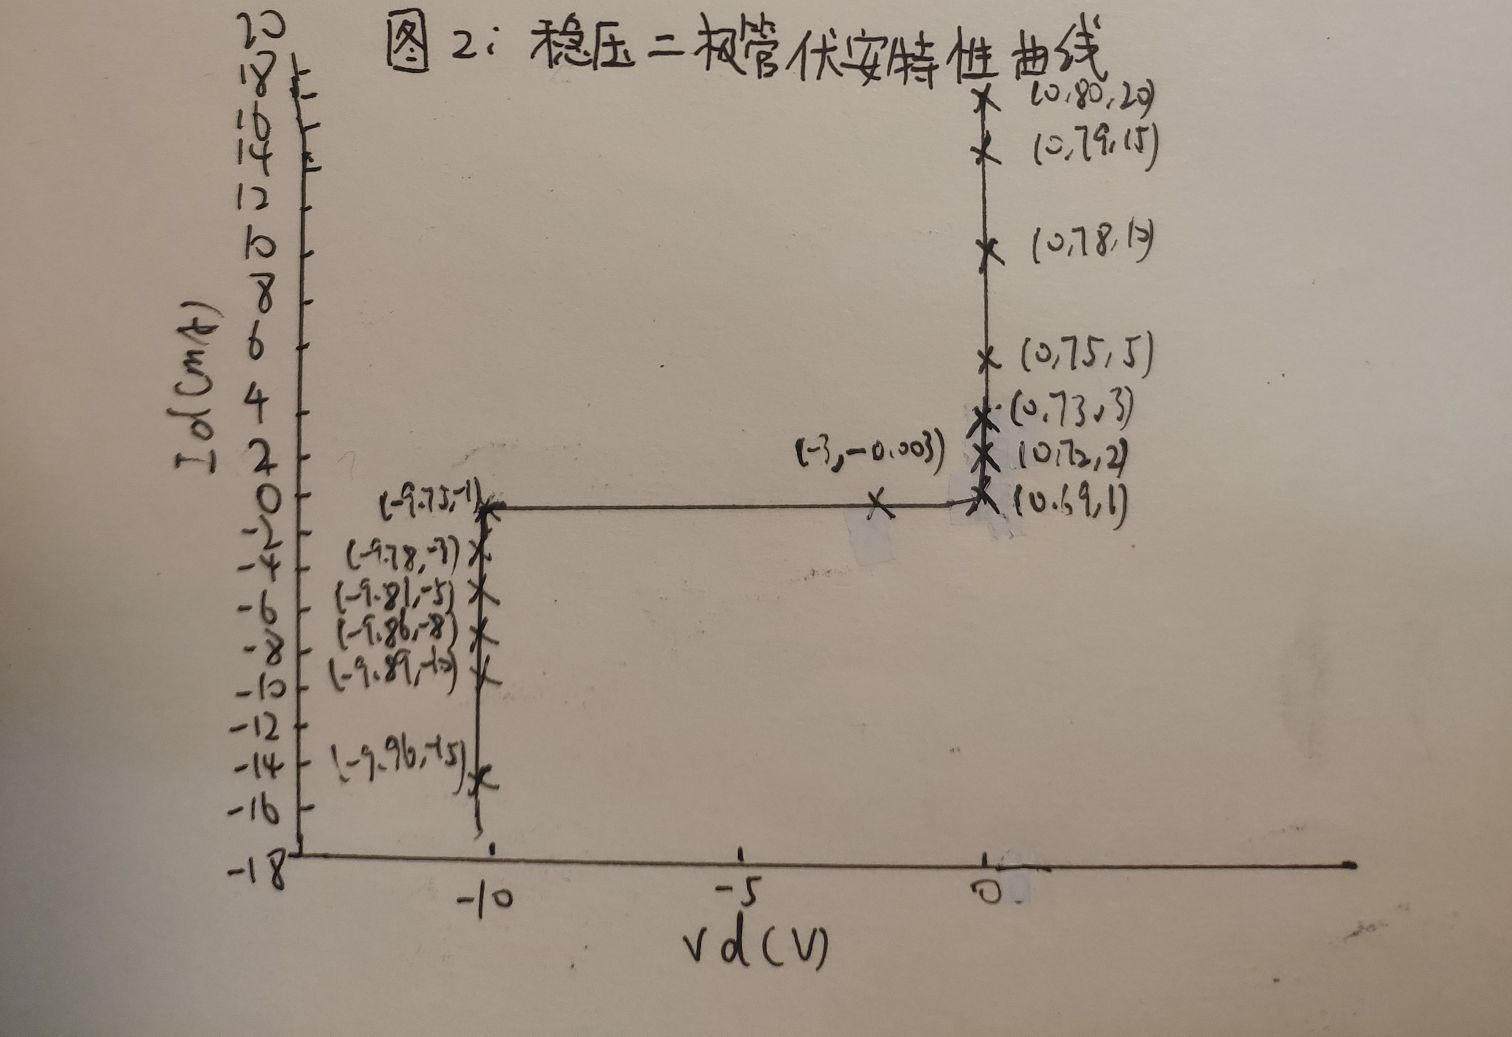 图2: 稳压二极管伏安特性曲线
20
18
16
14
12
10
8
6
4
2
0
-2
-4
-6
-8
-10
-12
-14
-16
-18
Id(mA)
(0.80,20)
(0.79,15)
(0.78,10)
(0.75,5)
(0.73,3)
(0.72,2)
(0.69,1)
(-3,-0.003)
(-9.75,-1)
(-9.78,-3)
(-9.81,-5)
(-9.86,-8)
(-9.89,-10)
(-9.96,-15)
-10
-5
0
Vd(V)